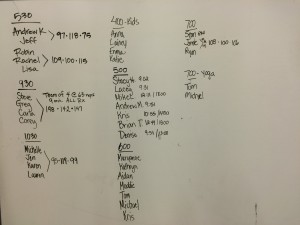 530
Andrew K
Jeff
97-118-75
Robin
Rachel
Lisa
109-100-115
930
Steve
Greg
Carla
Corey
Team of 4 @ 65 reps
9 min. ALL Rx
198-142-147
1030
Michelle
Jen
Karen
Lauren
91-118-93
400-Kids
Anna
Lainey
Emma
Katie
500
Stacy
Lacey 9:31
Andrew M
Kris
Brian T
Denise
600
Maryanne
Kathryn
Aidan
Maddie
Tom
Michael
Kris
700
Stan
Ryan
108-100-106
700-yoga
Tom
Michel